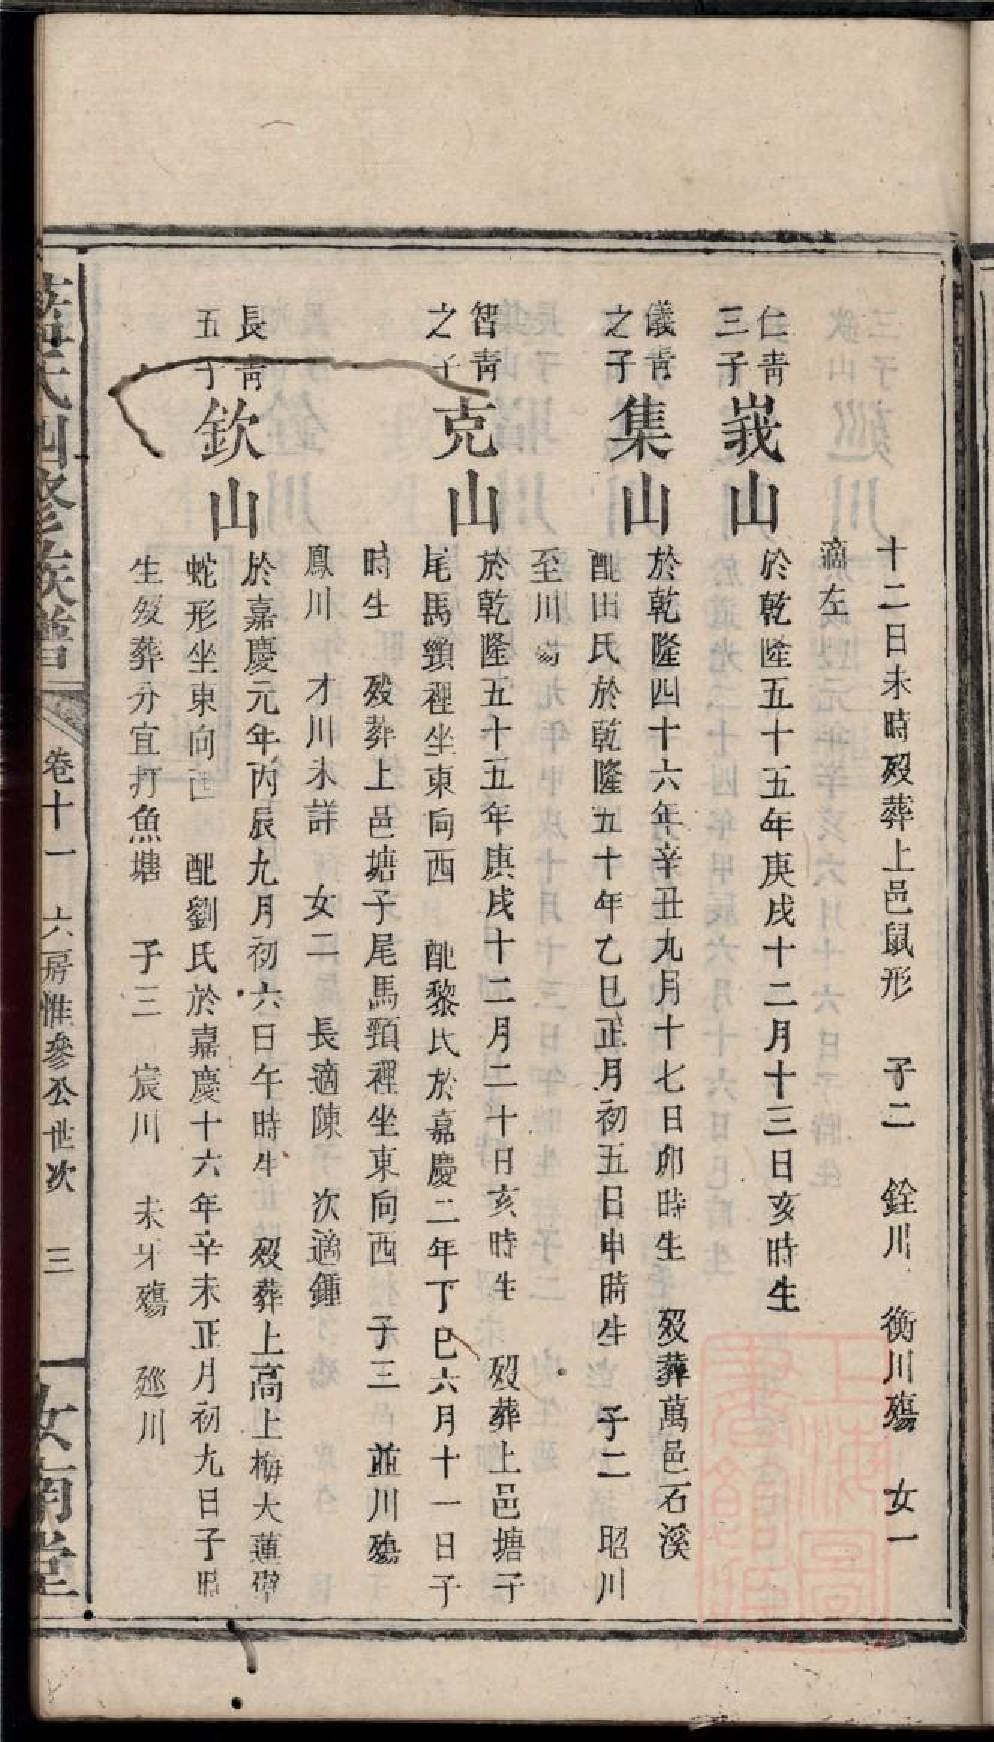 十二日未時歿葬上邑鼠形 子二 銓川 衡川殤 女一
適左
仁靑三子
峩山
於乾隆五十五年庚戌十二月十三日亥時生
儀靑之子
集山
於乾隆四十六年辛丑九月十七日卯時生 歿葬萬邑石溪
配田氏於乾隆五十年乙巳正月初五日申時生 子二 昭川
至川殤
智靑之子
克山
於乾隆五十五年庚戌十二月二十日亥時生 歿葬上邑塘子
尾馬頸裡坐東向西 配黎氏於嘉慶二年丁巳六月十一日子
時生 歿葬上邑塘子尾馬頸裡坐東向西 子三 並川殤
鳳川 才川未詳 女二 長適陳 次適鍾
長靑五子
欽山
於嘉慶元年丙辰九月初六日午時生 歿葬上高上梅大蓮
蛇形坐東向西 配劉氏於嘉慶十六年辛未正月初九日子時
生歿葬分宜打魚塘 子三 宸川 未牙殤 𢌞川
氏四修族譜
卷十一 六房惟參公世次 三
汝南堂
上海圖書館藏